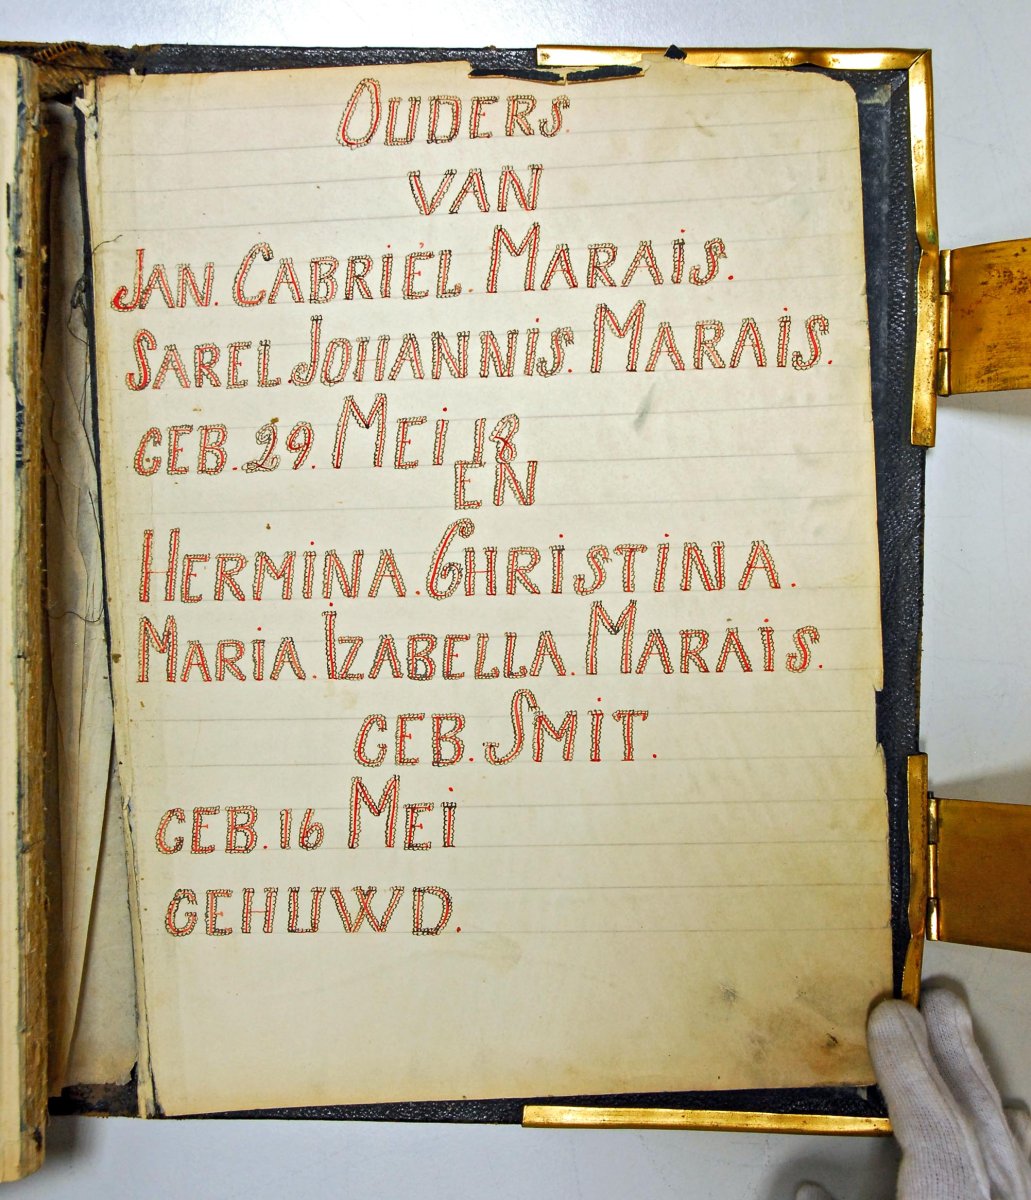 OUDERS
VAN
JAN. GABRIËL. MARAIS.
SAREL. JOHANNIS. MARAIS.
GEB. 29. MEI 18
EN
HERMINA. CHRISTINA.
MARIA. IZABELLA. MARAIS.
GEB. SMIT.
GEB. 16 MEI
GEHUWD.